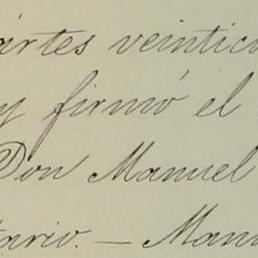 ártes veintici
y firmó el
Don Manuel
tario. — Manu